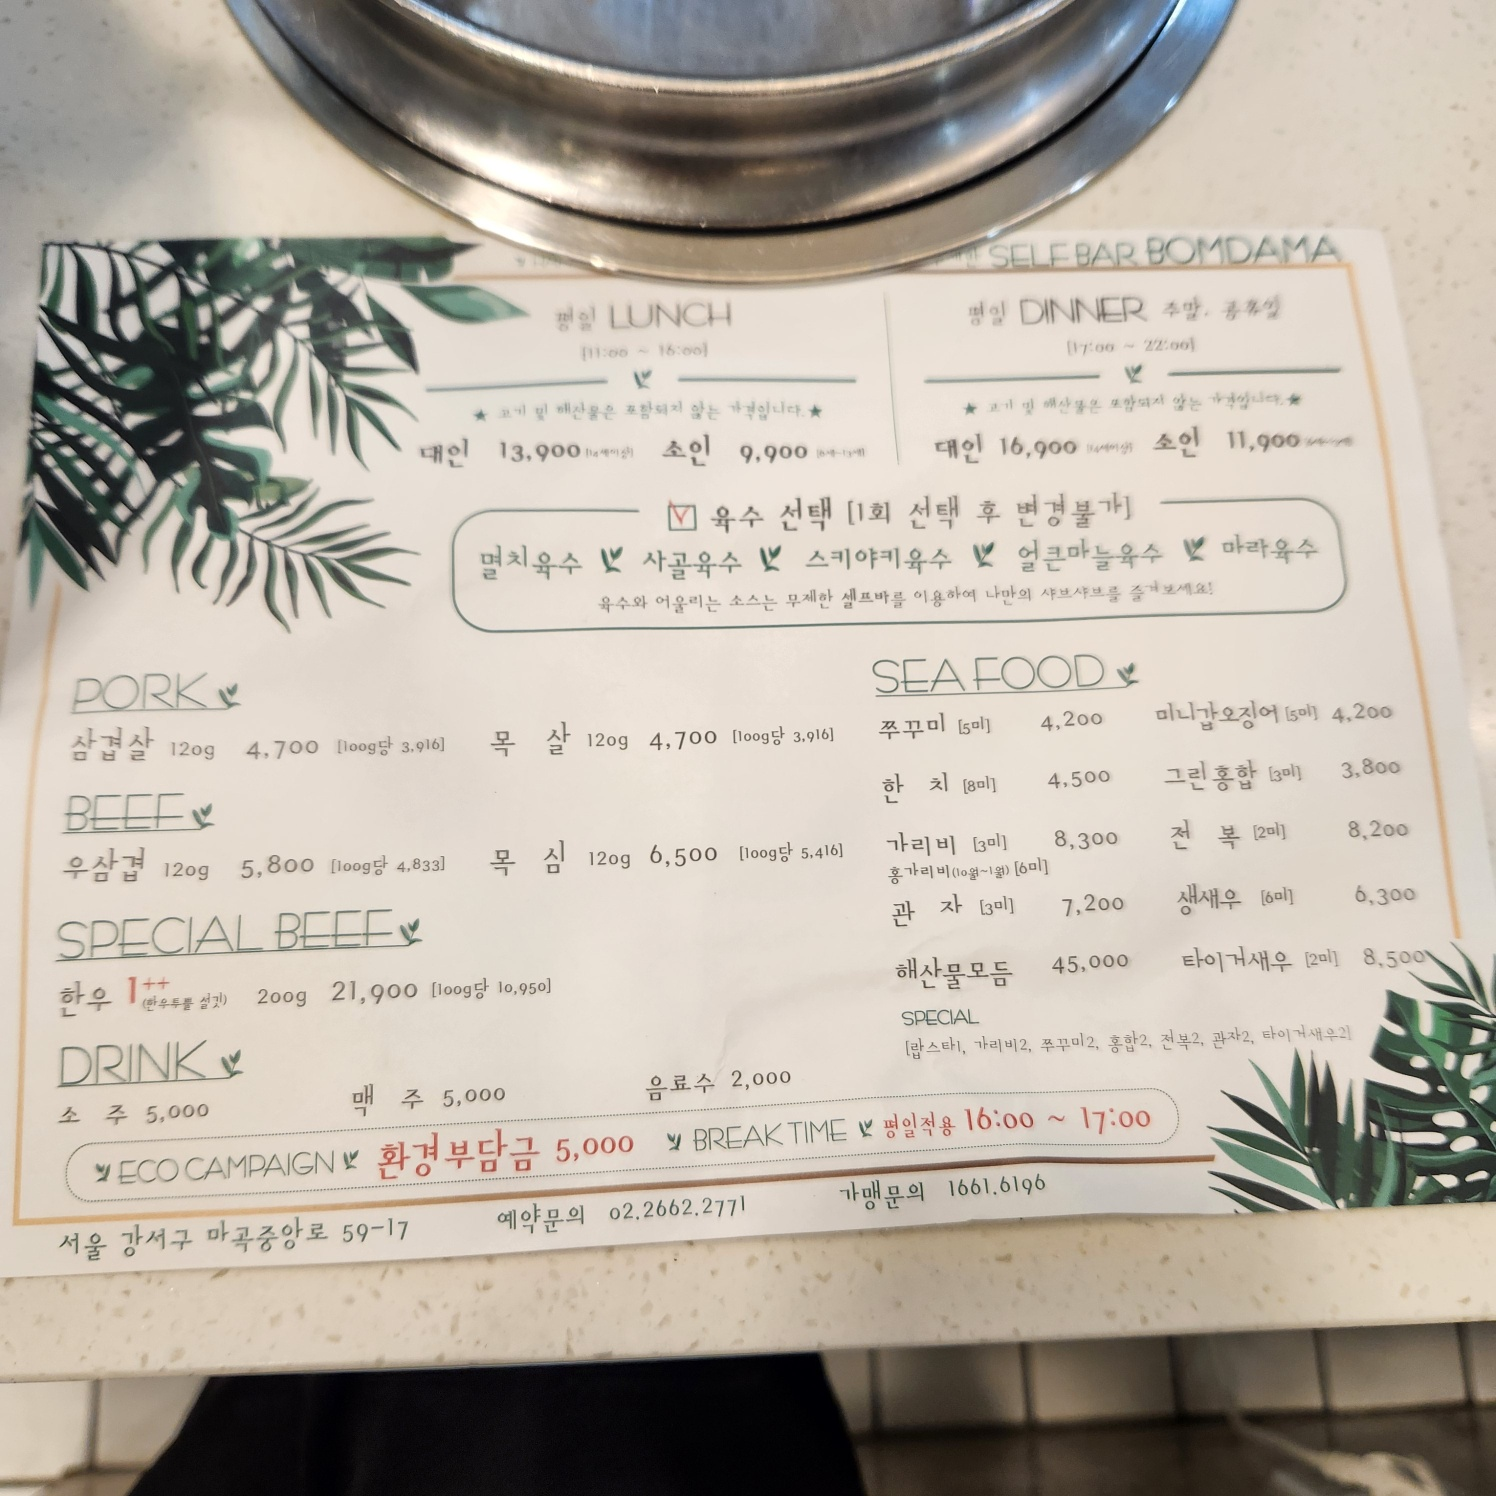 SELF BAR BOMDAMA
평일 LUNCH
[11:00 ~ 16:00]
★ 고기 및 해산물은 포함되지 않는 가격입니다.★
대인 13,900 [14세이상] 소인 9,900
평일 DINNER 주말. 공휴일
[17:00 ~ 22:00]
★ 고기 및 해산물은 포함되지 않는 가격입니다.★
대인 16,900 [14세이상] 소인 11,900
육수 선택 [1회 선택 후 변경불가]
멸치육수 사골육수 스키야키육수 얼큰마늘육수 마라육수
육수와 어울리는 소스는 무제한 셀프바를 이용하여 나만의 샤브샤브를 즐겨보세요!
PORK
삼겹살 120g 4,700 [100g당 3,916] 목 살 120g 4,700 [100g당 3,916]
BEEF
우삼겹 120g 5,800 [100g당 4,833] 목 심 120g 6,500 [100g당 5,416]
SPECIAL BEEF
한우 1++ (한우투뿔 설깃) 200g 21,900 [100g당 10,950]
DRINK
소 주 5,000 맥 주 5,000 음료수 2,000
SEA FOOD
쭈꾸미 [5미] 4,200 미니갑오징어 [5미] 4,200
한 치 [8미] 4,500 그린홍합 [3미] 3,800
가리비 [3미] 8,300 전 복 [2미] 8,200
홍가리비(10월~1월) [6미]
관 자 [3미] 7,200 생새우 [6미] 6,300
해산물모듬 45,000 타이거새우 [2미] 8,500
SPECIAL
[랍스타1, 가리비2, 쭈꾸미2, 홍합2, 전복2, 관자2, 타이거새우2]
ECO CAMPAIGN 환경부담금 5,000 BREAK TIME 평일적용 16:00 ~ 17:00
서울 강서구 마곡중앙로 59-17 예약문의 02.2662.2771 가맹문의 1661.6196